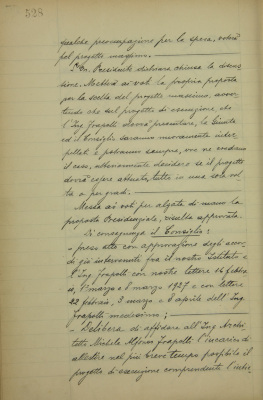 528
qualche preoccupazione per la spesa, voterà
pel progetto massimo.
L'On. Presidente dichiara chiusa la discus-
sione. Metterà ai voti la propria proposta
per la scelta del progetto massimo, avver-
tendo che sul progetto di esecuzione che
l'Ing. Frapolli dovrà presentare, la Giunta
ed il Consiglio saranno nuovamente inter-
pellati e potranno sempre, ove ne vedano
il caso, ulteriormente decidere se il progetto
dovrà essere attuato tutto in una sola vol-
ta o per gradi.
Messa ai voti per alzata di mano la
proposta Presidenziale, risulta approvata.
Di conseguenza il Consiglio:
- preso atto con approvazione degli accor-
di già intervenuti fra il nostro Istituto e
l'Ing. Frapolli con nostre lettere 16 febbra-
io, 1° marzo e 8 marzo 1927 e con lettere
22 febbraio, 3 marzo e 6 aprile dell'Ing.
Frapolli medesimo;
- Delibera di affidare all'Ing. Archi-
tetto Michele Frapolli l'incarico di
allestire nel più breve tempo possibile il
progetto di esecuzione comprendente l'inte-